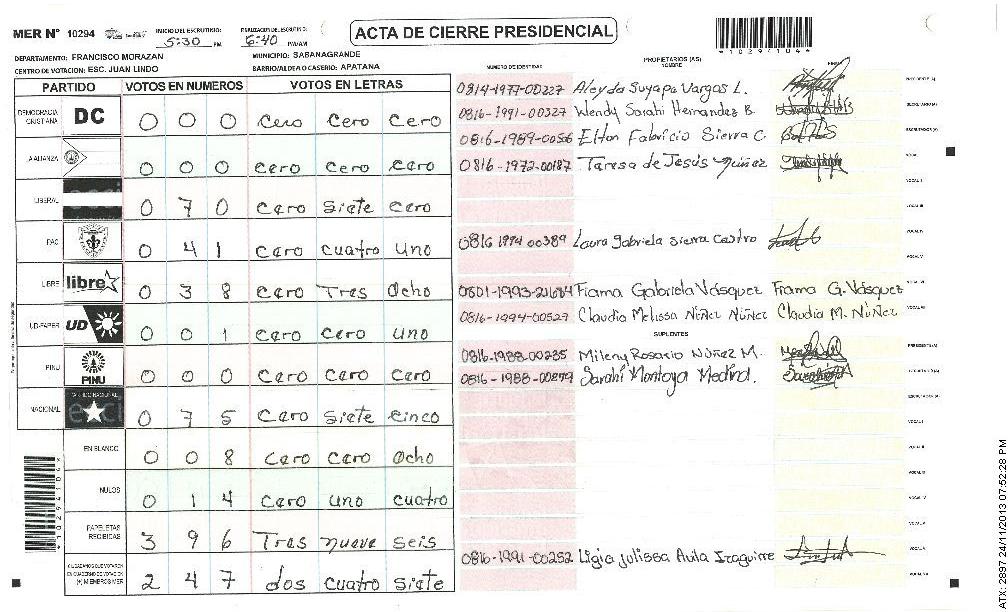 MER N° 10294
INICIO DEL ESCRUTINIO: 5:30 PM
6:40 PM/AM
ACTA DE CIERRE PRESIDENCIAL
*10294106*
DEPARTAMENTO: FRANCISCO MORAZAN
MUNICIPIO: SABANAGRANDE
CENTRO DE VOTACION: ESC. JUAN LINDO
BARRIO/ALDEA O CASERIO: APATANA
PARTIDO VOTOS EN NUMEROS VOTOS EN LETRAS
DEMOCRACIA CRISTIANA DC 0 0 0 cero cero cero
AALIANZA 0 0 0 cero cero cero
LIBERAL 0 7 0 cero siete cero
PAC 0 4 1 cero cuatro uno
LIBRE libre 0 3 8 cero Tres ocho
UD-FAPER UD 0 0 1 cero cero uno
PINU PINU 0 0 0 cero cero cero
NACIONAL 0 7 5 cero siete cinco
EN BLANCO 0 0 8 cero cero ocho
NULOS 0 1 4 cero uno cuatro
PAPELETAS RECIBIDAS 3 9 6 Tres nueve seis
CIUDADANOS QUE VOTARON EN CUADERNO DE VOTACION (+) MIEMBROS MER 2 4 7 dos cuatro siete
NUMERO DE IDENTIDAD
PROPIETARIOS (AS)
NOMBRE
FIRMA
0814-1977-00227 Aleyda Suyapa Vargas L.
0816-1991-00327 Wendy Sarahi Hernandez B.
0816-1989-00566 Elton Fabricio Sierra C.
0816-1972-00187 Teresa de Jesús Nuñez
0816 1994 00389 Laura Gabriela Sierra Castro
Fiama Gabriela Vásquez Fiama G. Vásquez
0816-1994-00527 Claudia Melissa Núñez Núñez Claudia M. Núñez
SUPLENTES
0816-1988-00235 Mileny Rosario Núñez M.
0816-1988-00279 Sarahi Montoya Medina.
0816-1991-00252 Ligia Julissa Avila Izaguirre
*10294106*
ATX: 2897 24/11/2013 07:52:28 PM